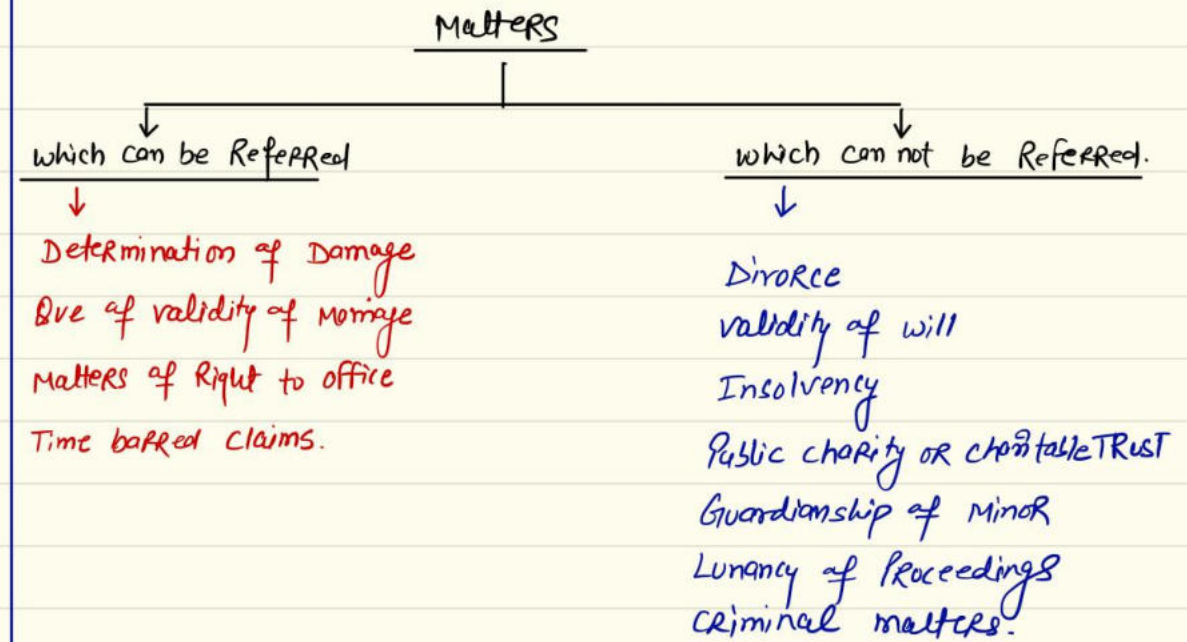 Matters
which can be Referred
which can not be Referred.
Determination of Damage
Que of validity of Marriage
Matters of Right to office
Time barred claims.
Divorce
validity of will
Insolvency
Public charity OR charitable TRUST
Guardianship of Minor
Lunancy of Proceedings
Criminal matters.